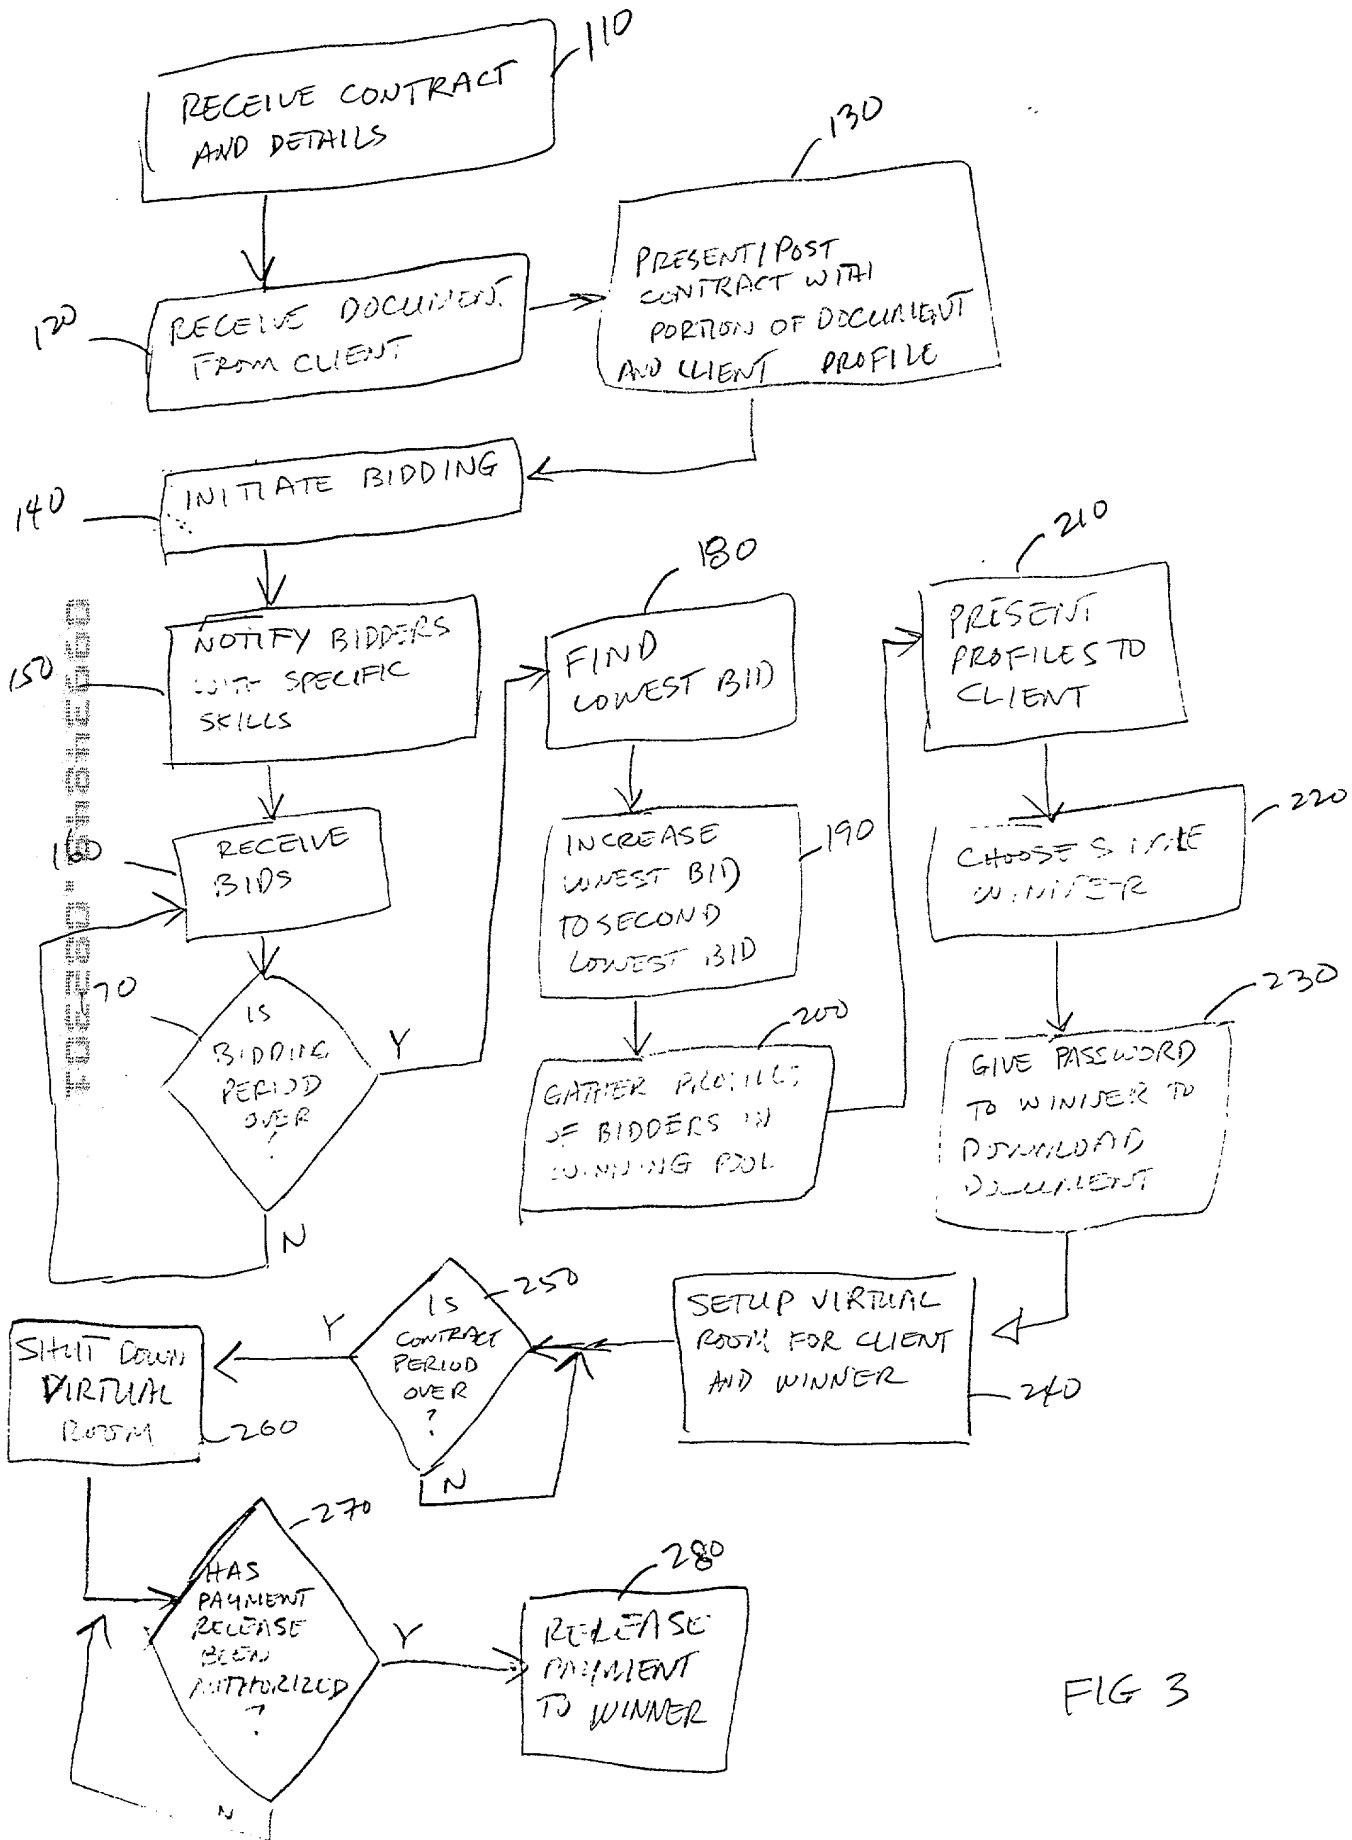 110
RECEIVE CONTRACT
AND DETAILS
120
RECEIVE DOCUMENT
FROM CLIENT
130
PRESENT/POST
CONTRACT WITH
PORTION OF DOCUMENT
AND CLIENT PROFILE
140
INITIATE BIDDING
150
NOTIFY BIDDERS
WITH SPECIFIC
SKILLS
160
RECEIVE
BIDS
170
IS
BIDDING
PERIOD
OVER
?
Y
N
180
FIND
LOWEST BID
190
INCREASE
LOWEST BID
TO SECOND
LOWEST BID
200
GATHER PROFILES
OF BIDDERS IN
WINNING POOL
210
PRESENT
PROFILES TO
CLIENT
220
CHOOSE SINGLE
WINNER
230
GIVE PASSWORD
TO WINNER TO
DOWNLOAD
DOCUMENT
SETUP VIRTUAL
ROOM FOR CLIENT
AND WINNER
240
250
IS
CONTRACT
PERIOD
OVER
?
Y
N
SHUT DOWN
VIRTUAL
ROOM
260
270
HAS
PAYMENT
RELEASE
BEEN
AUTHORIZED
?
Y
N
280
RELEASE
PAYMENT
TO WINNER
FIG 3